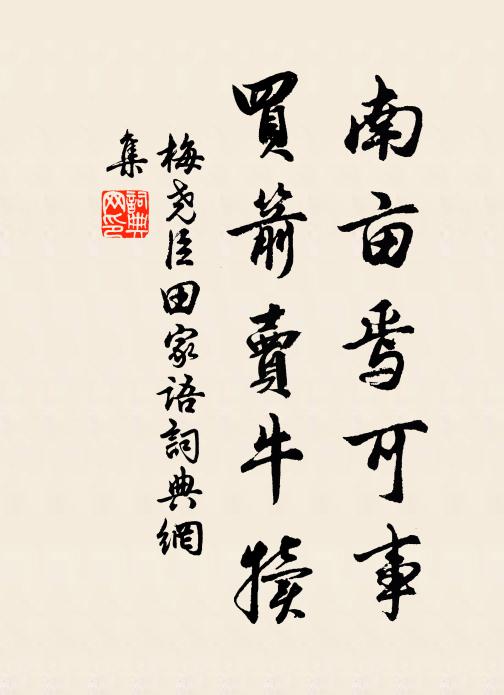 南亩焉可事
買箭賣牛犢
梅尧臣田家语詞典網
集
詞典
网印